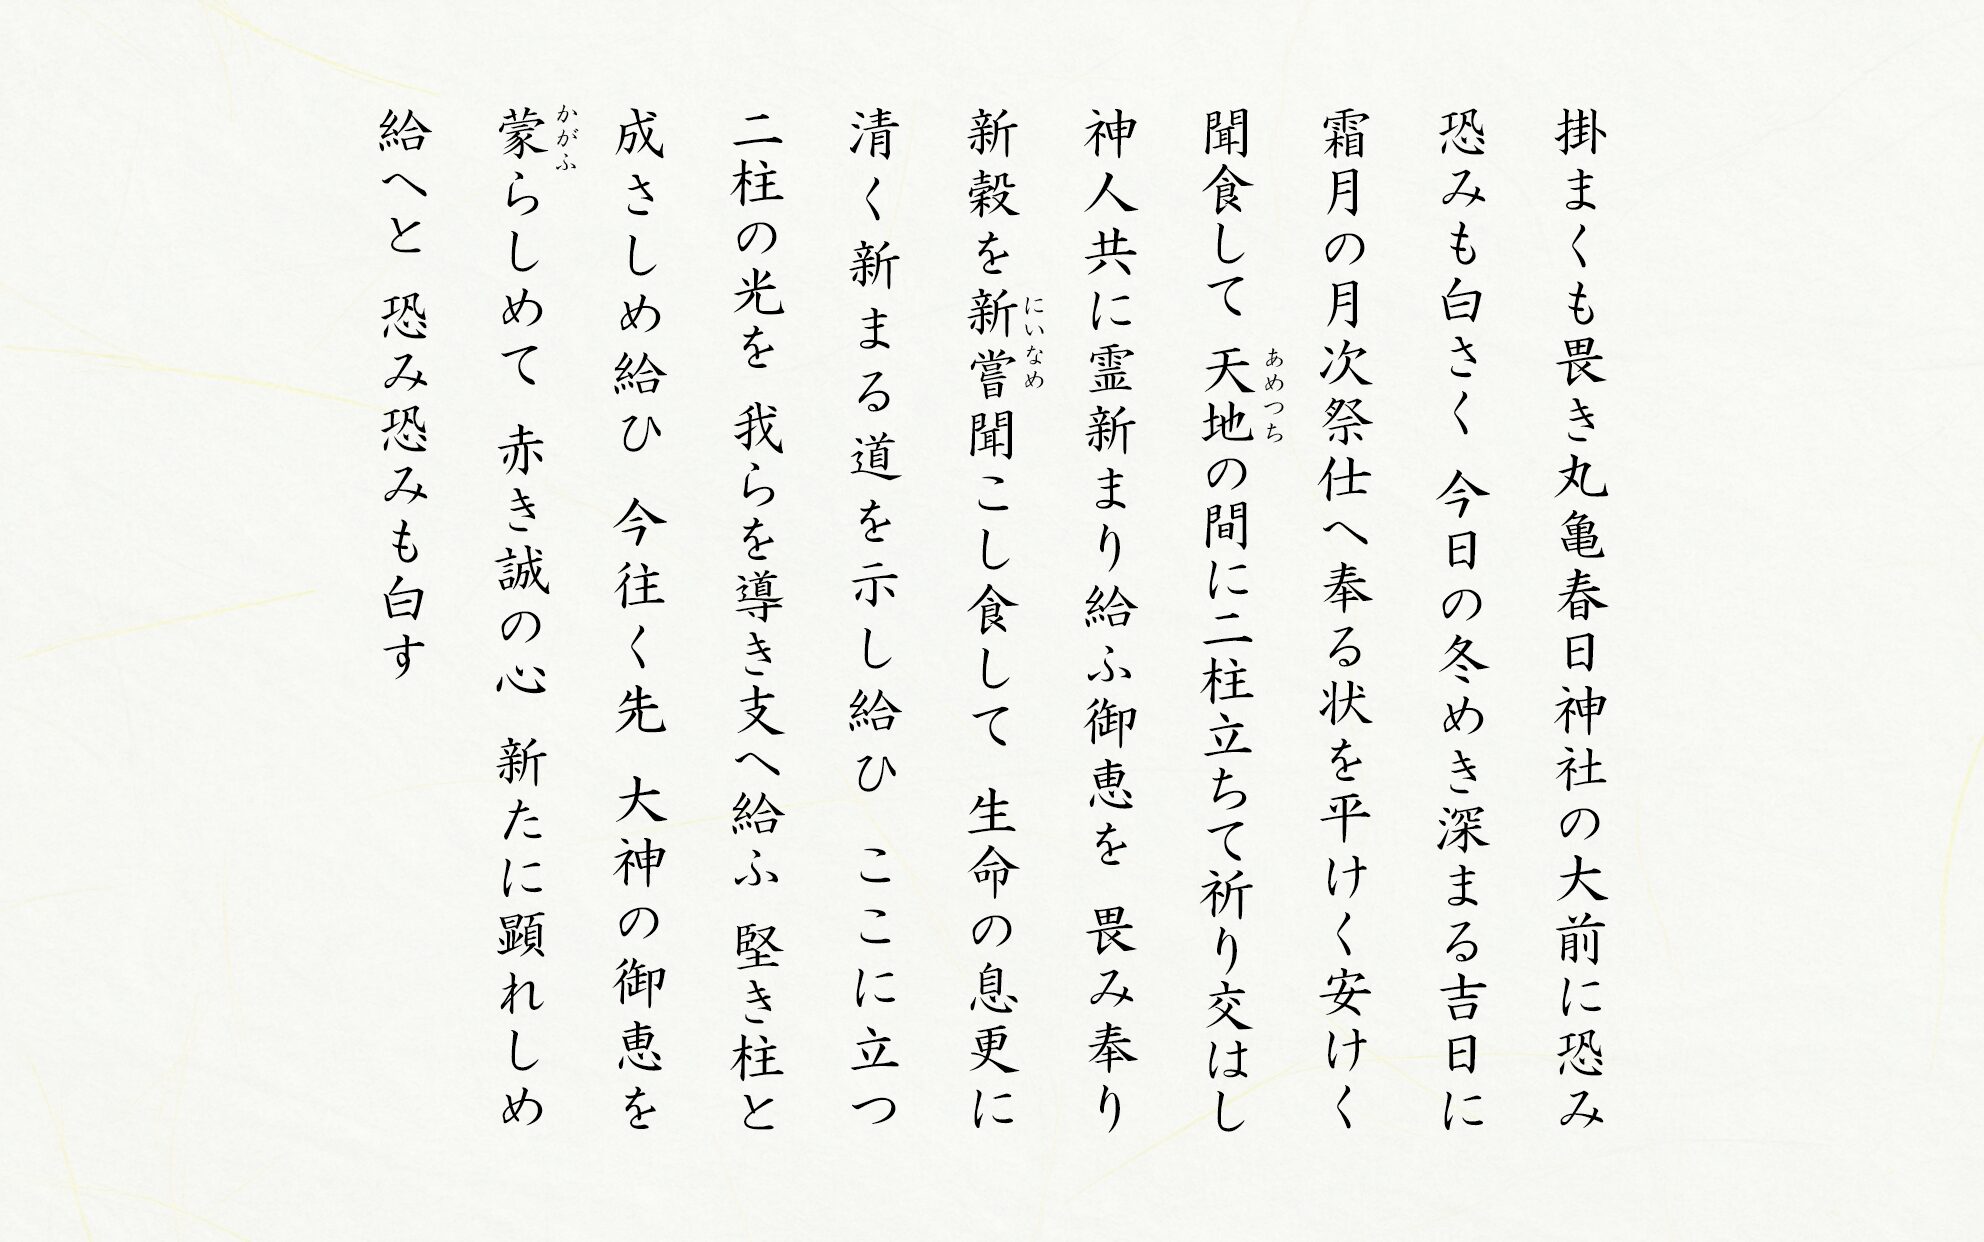 掛まくも畏き丸亀春日神社の大前に恐み
恐みも白さく 今日の冬めき深まる吉日に
霜月の月次祭仕へ奉る状を平けく安けく
聞食して 天地の間に二柱立ちて祈り交はし
あめつち
神人共に霊新まり給ふ御恵を 畏み奉り
新穀を新嘗聞こし食して 生命の息更に
にいなめ
清く新まる道を示し給ひ ここに立つ
二柱の光を 我らを導き支へ給ふ 堅き柱と
成さしめ給ひ 今往く先 大神の御恵を
蒙らしめて 赤き誠の心 新たに顕れしめ
かがふ
給へと 恐み恐みも白す